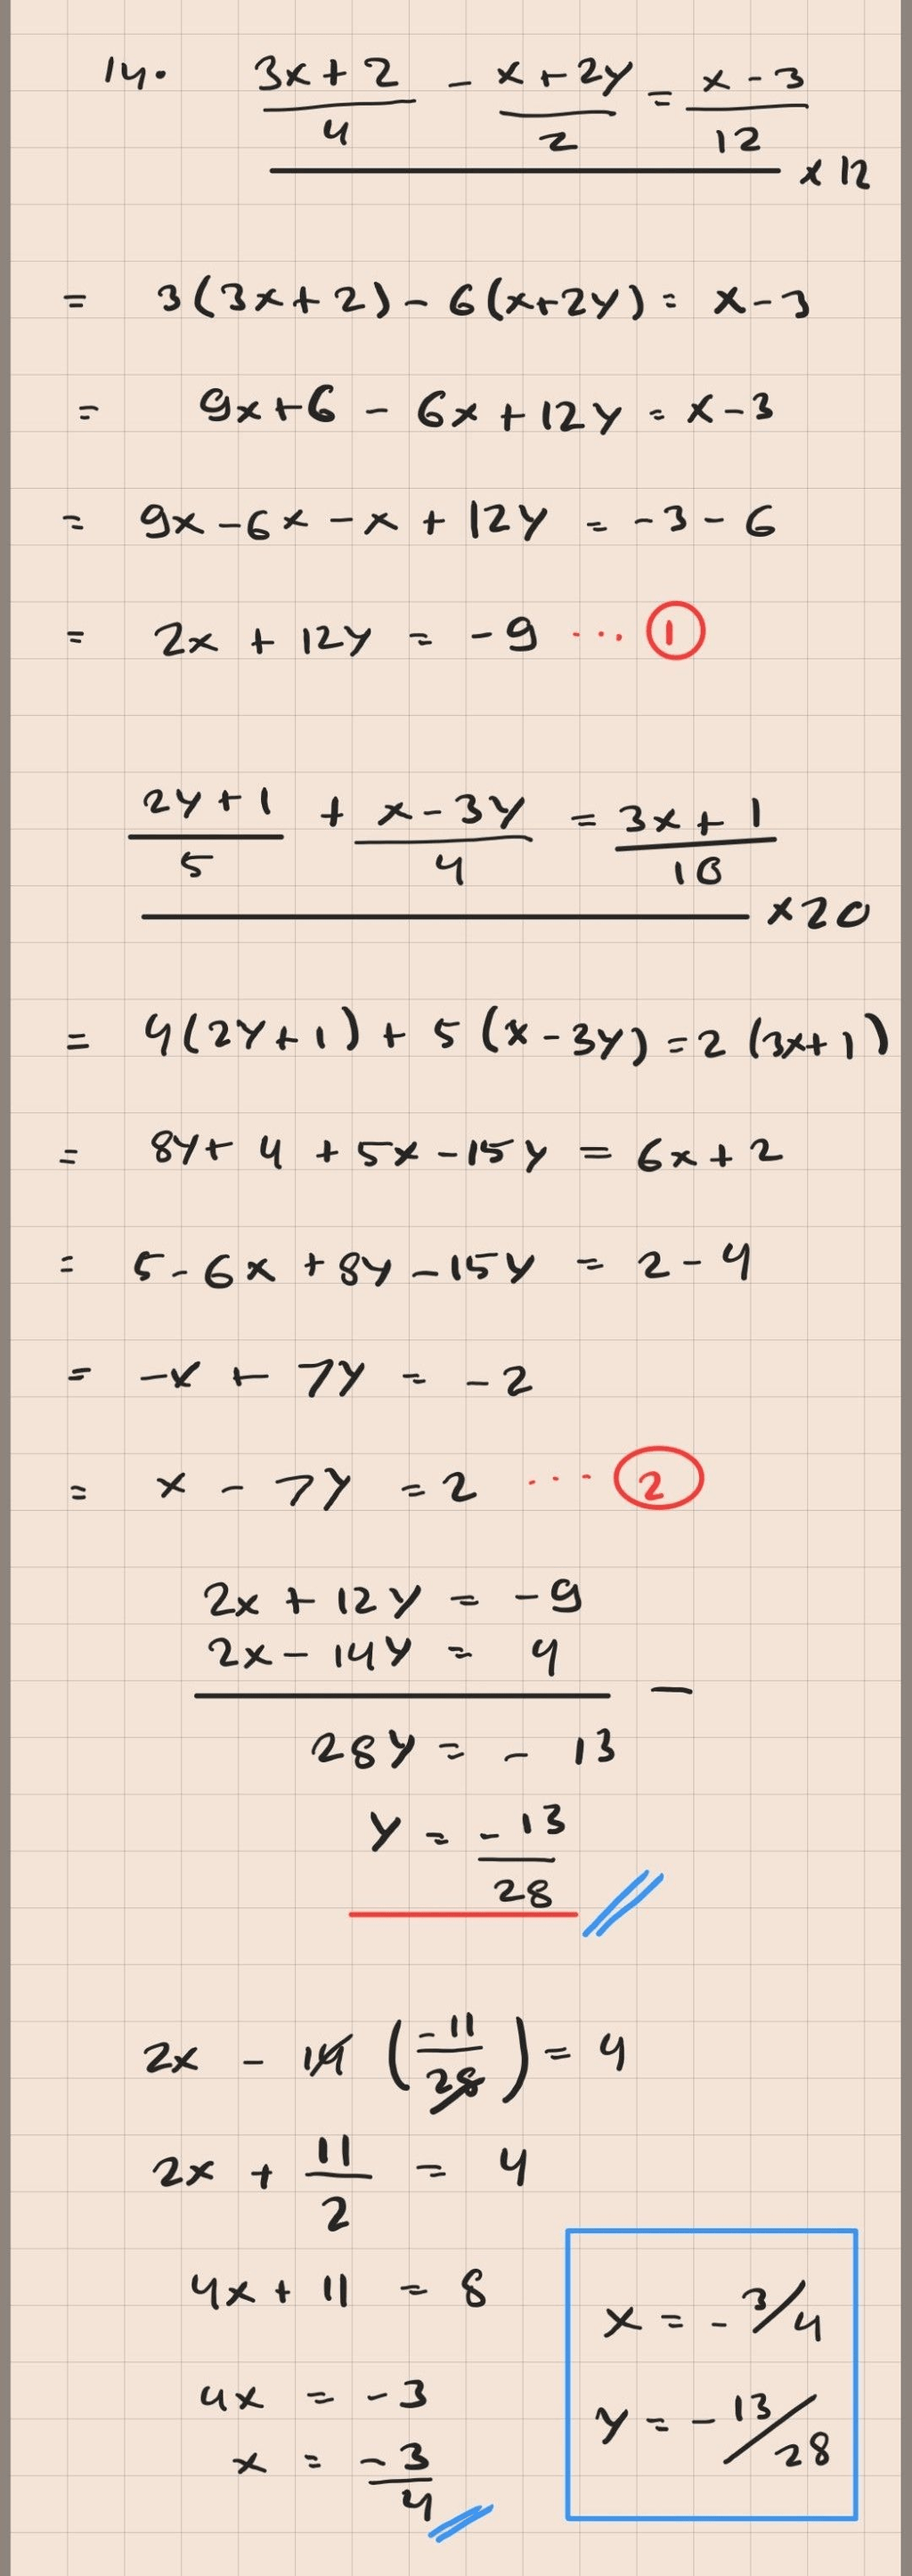 14. (3x + 2)/4 - (x + 2y)/2 = (x - 3)/12
x 12
= 3(3x + 2) - 6(x+2y) = x - 3
= 9x + 6 - 6x + 12y = x - 3
= 9x - 6x - x + 12y = -3 - 6
= 2x + 12y = -9 ... ①
(2y + 1)/5 + (x - 3y)/4 = (3x + 1)/10
x 20
= 4(2y + 1) + 5 (x - 3y) = 2 (3x + 1)
= 8y + 4 + 5x - 15y = 6x + 2
= 5 - 6x + 8y - 15y = 2 - 4
= -x + 7y = -2
= x - 7y = 2 ... ②
2x + 12y = -9
2x - 14y = 4
—
28y = - 13
y = -13/28
2x - 14 (-11/28) = 4
2x + 11/2 = 4
4x + 11 = 8
4x = -3
x = -3/4
x = - 3/4
y = - 13/28